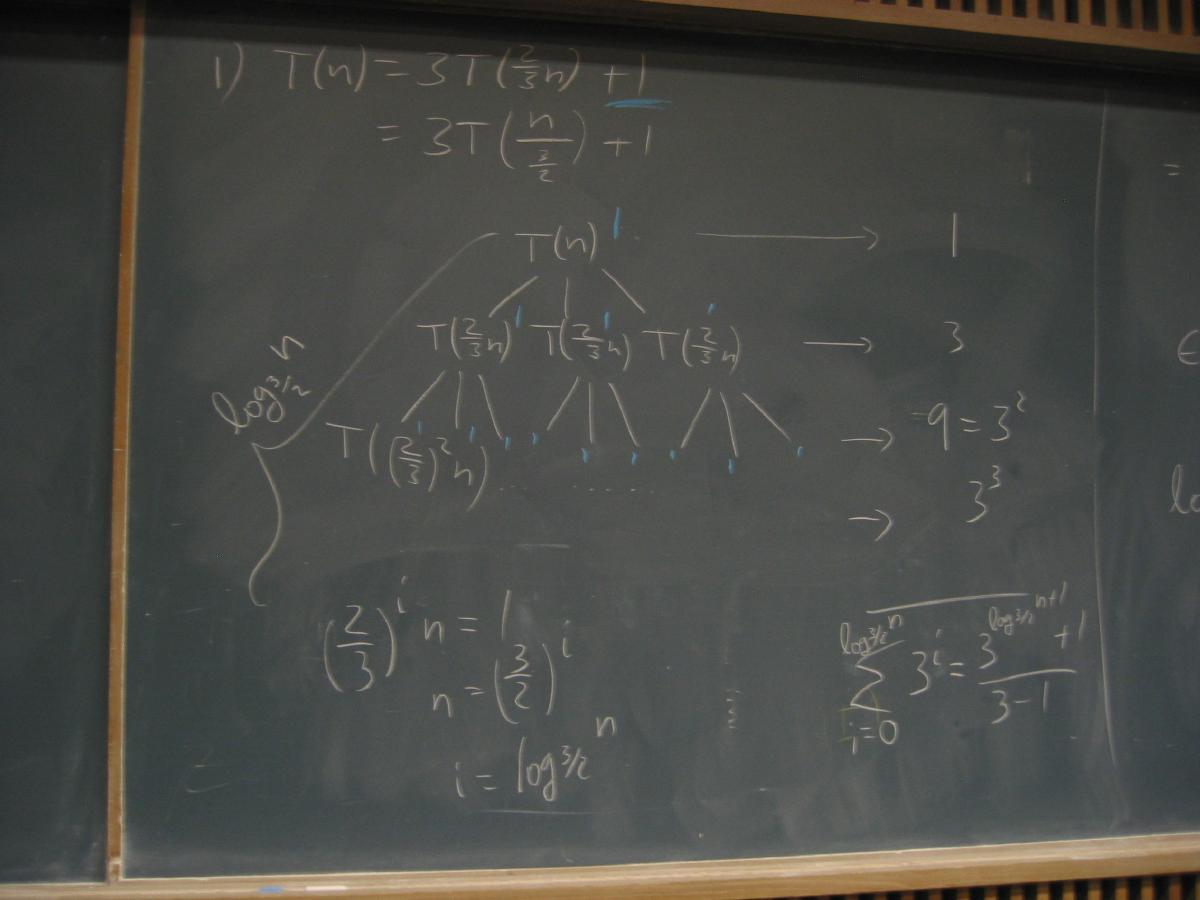 1) T(n) = 3T(2/3 n) + 1
= 3T(n/(3/2)) + 1
T(n) 1 → 1
T(2/3 n) 1 T(2/3 n) 1 T(2/3 n) 1 → 3
log 3/2 n
T((2/3)² n) 1 1 1 1 1 1 1 1 1 → 9 = 3²
..... → 3³
(2/3)^i n = 1
n = (3/2)^i
i = log 3/2 n
∑_{i=0}^{log 3/2 n} 3^i = (3^{log 3/2 n+1} + 1)/(3 - 1)
=
∈